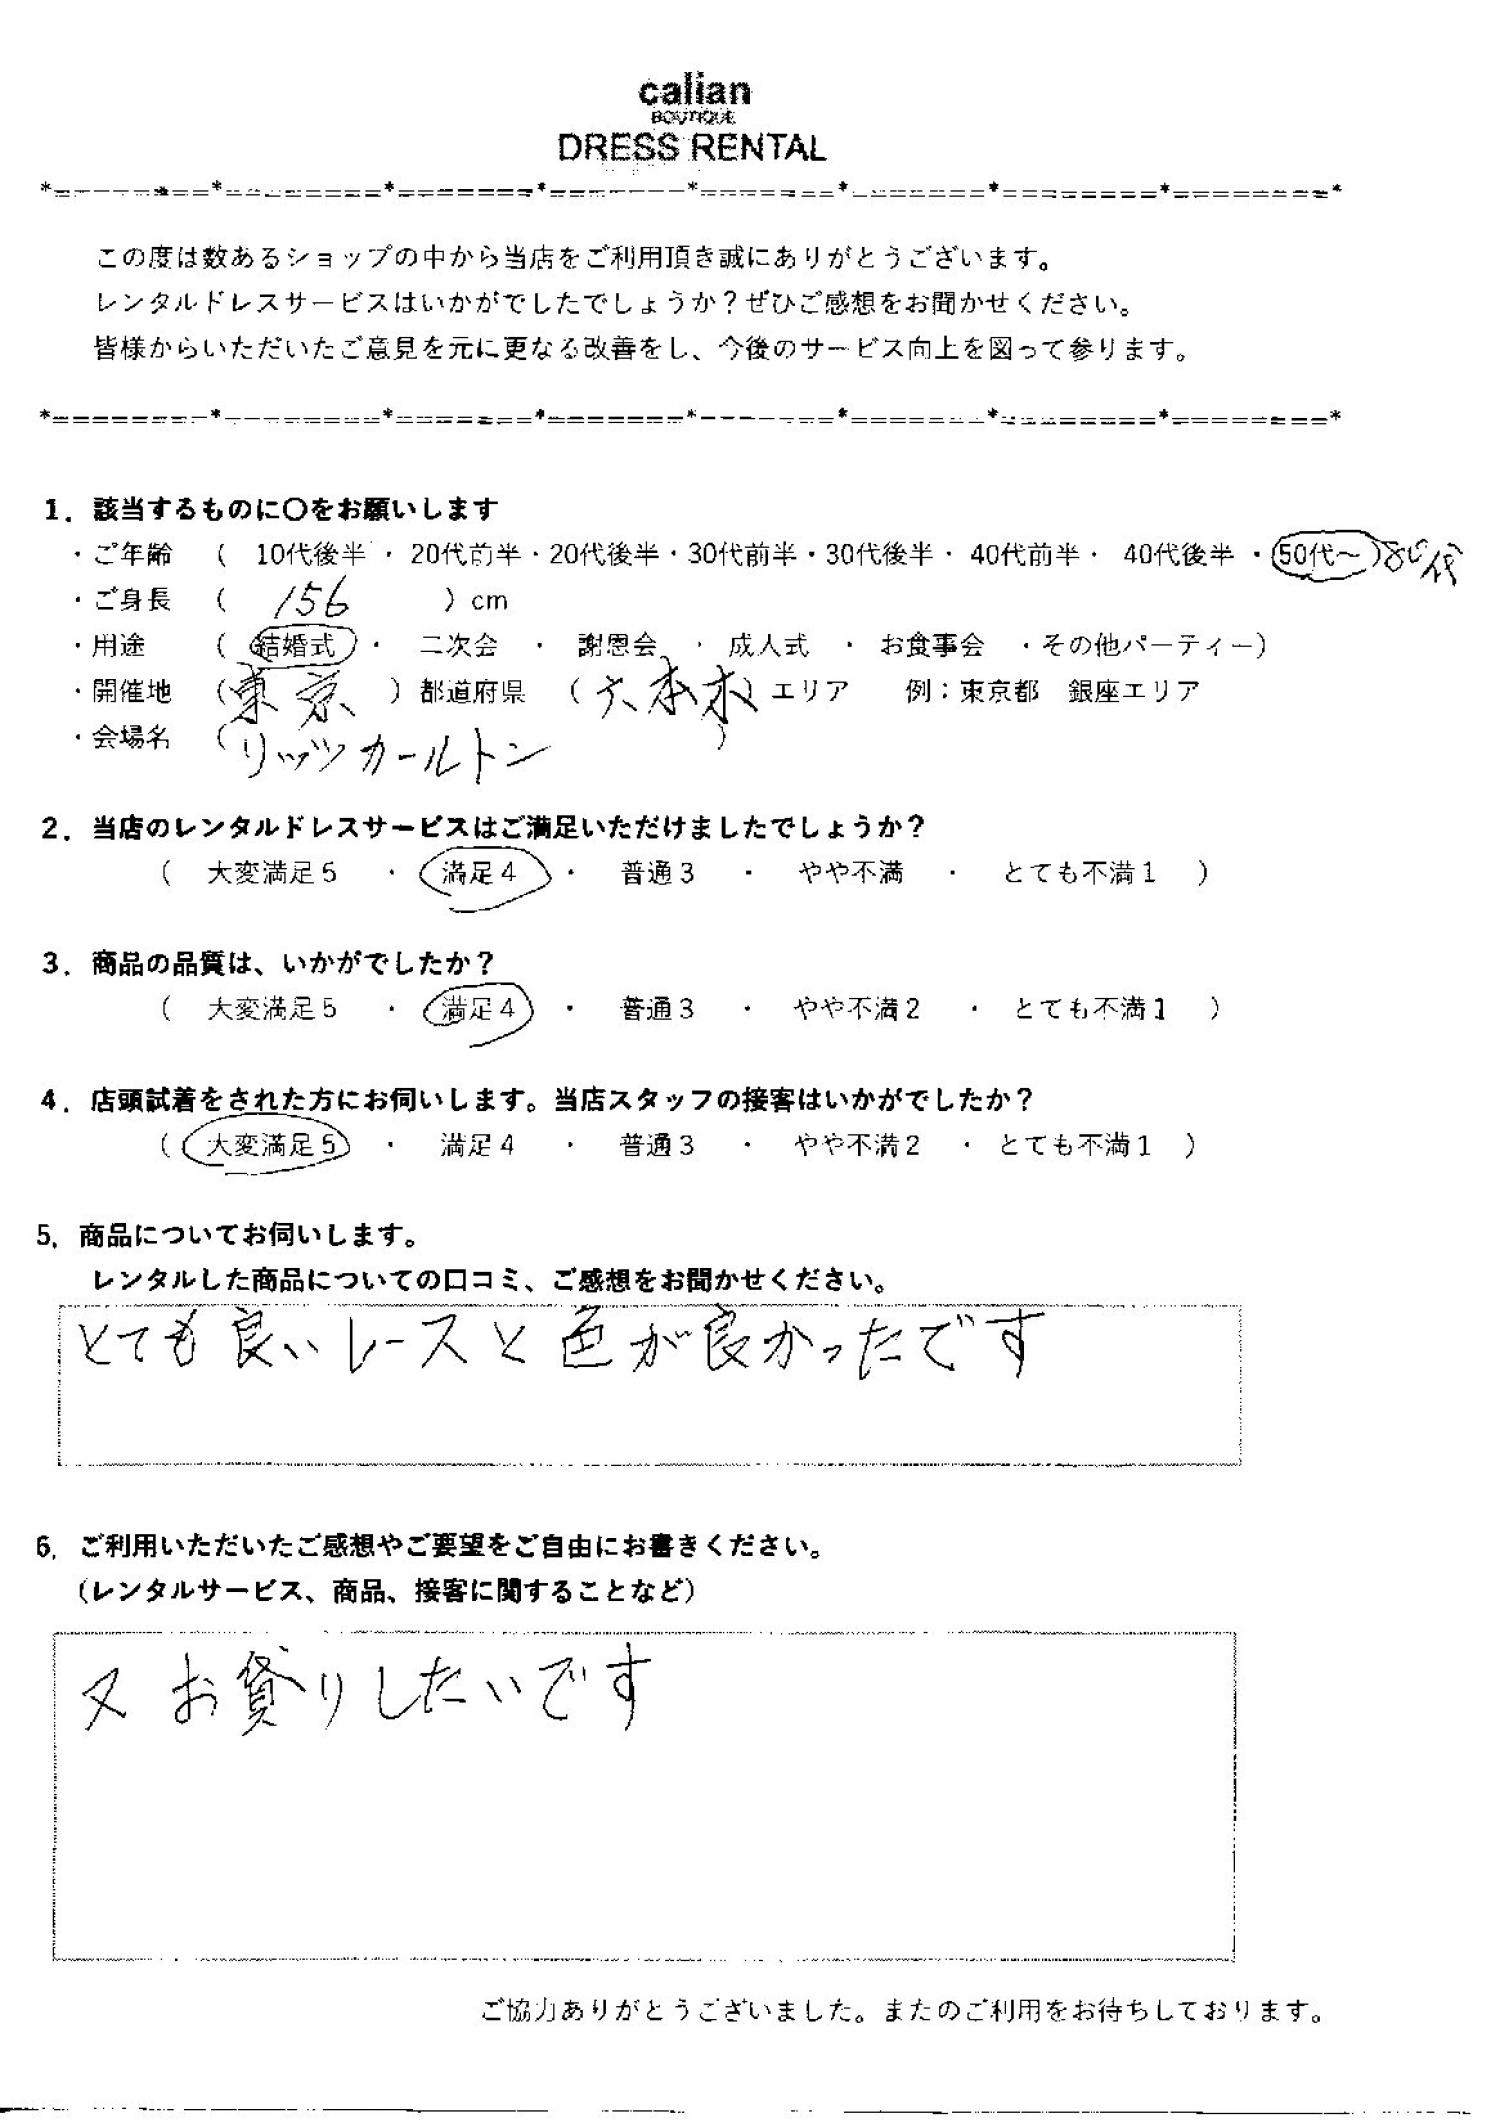 calian
BOUTIQUE
DRESS RENTAL
この度は数あるショップの中から当店をご利用頂き誠にありがとうございます。
レンタルドレスサービスはいかがでしたでしょうか？ぜひご感想をお聞かせください。
皆様からいただいたご意見を元に更なる改善をし、今後のサービス向上を図って参ります。
1．該当するものに〇をお願いします
・ご年齢 （ 10代後半 ・ 20代前半・20代後半・30代前半・30代後半・ 40代前半・ 40代後半 ・ 50代～ ）80代
・ご身長 （ 156 ）cm
・用途 （ 結婚式 ・ 二次会 ・ 謝恩会 ・ 成人式 ・ お食事会 ・その他パーティー）
・開催地 （ 東京 ）都道府県 （ 六本木 ）エリア 例：東京都 銀座エリア
・会場名 （ リッツカールトン ）
2．当店のレンタルドレスサービスはご満足いただけましたでしょうか？
（ 大変満足５ ・ 満足４ ・ 普通３ ・ やや不満 ・ とても不満１ ）
3．商品の品質は、いかがでしたか？
（ 大変満足５ ・ 満足４ ・ 普通３ ・ やや不満２ ・ とても不満１ ）
4．店頭試着をされた方にお伺いします。当店スタッフの接客はいかがでしたか？
（ 大変満足５ ・ 満足４ ・ 普通３ ・ やや不満２ ・ とても不満１ ）
5．商品についてお伺いします。
レンタルした商品についての口コミ、ご感想をお聞かせください。
とても良いレースと色が良かったです
6．ご利用いただいたご感想やご要望をご自由にお書きください。
（レンタルサービス、商品、接客に関することなど）
又 お貸りしたいです
ご協力ありがとうございました。またのご利用をお待ちしております。